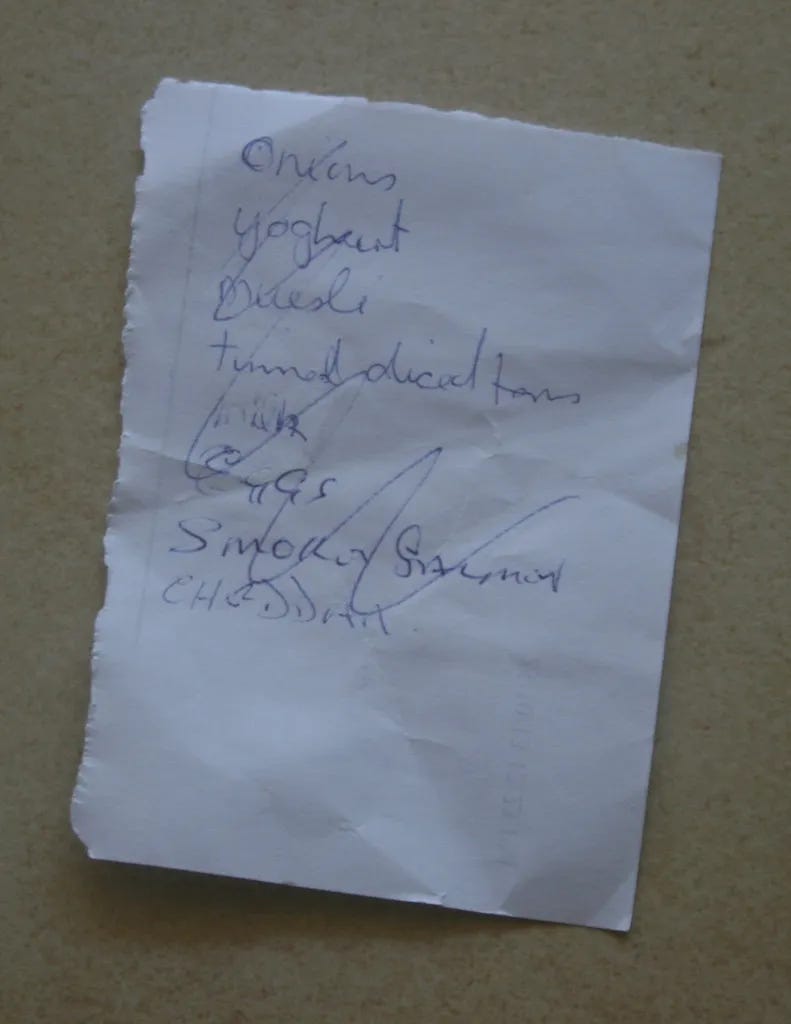 Onions
yoghurt
Muesli
tinned diced toms
milk
EGGS
SMOKED SALMON
CHEDDAR